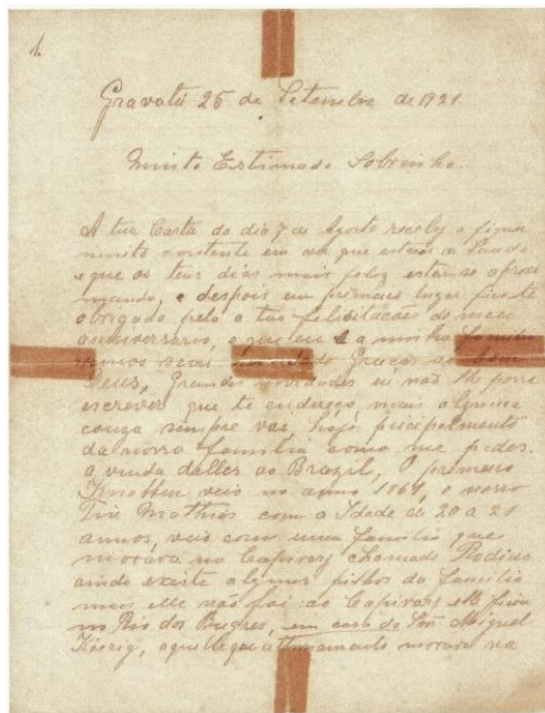 1.
Gravatá 25 de Setembro de 1921
Muito Estimado Sobrinho.
A tua Carta do dia 7 de Agosto receby e fiquei
muito contente em ver que estaes de Saude
e que os teus dias mais feliz estão se aproxi
mando, e despois em primeiro lugar fico te
obrigado pela a tua felicitacões do meu
anniversario, e que eu e a minha Familia
Graças ao Bom
Deus, Grandes novidades eu não lhe posso
escrever que te endereço mais alguma
couza sempre vae hoje
da nossa familia como me pedes.
a vinda delles ao Brazil, O primeiro
veio no anno 1864, o nosso
Tio Mathias com a Idade de 20 a 21
annos, veio com uma familia que
morava no Capivary chamado
ainda existe algums filhos da familia
mais elle não foi ao Capivary elle ficou
no Rio dos Bugres, em casa do Miguel
aquelle que morava na